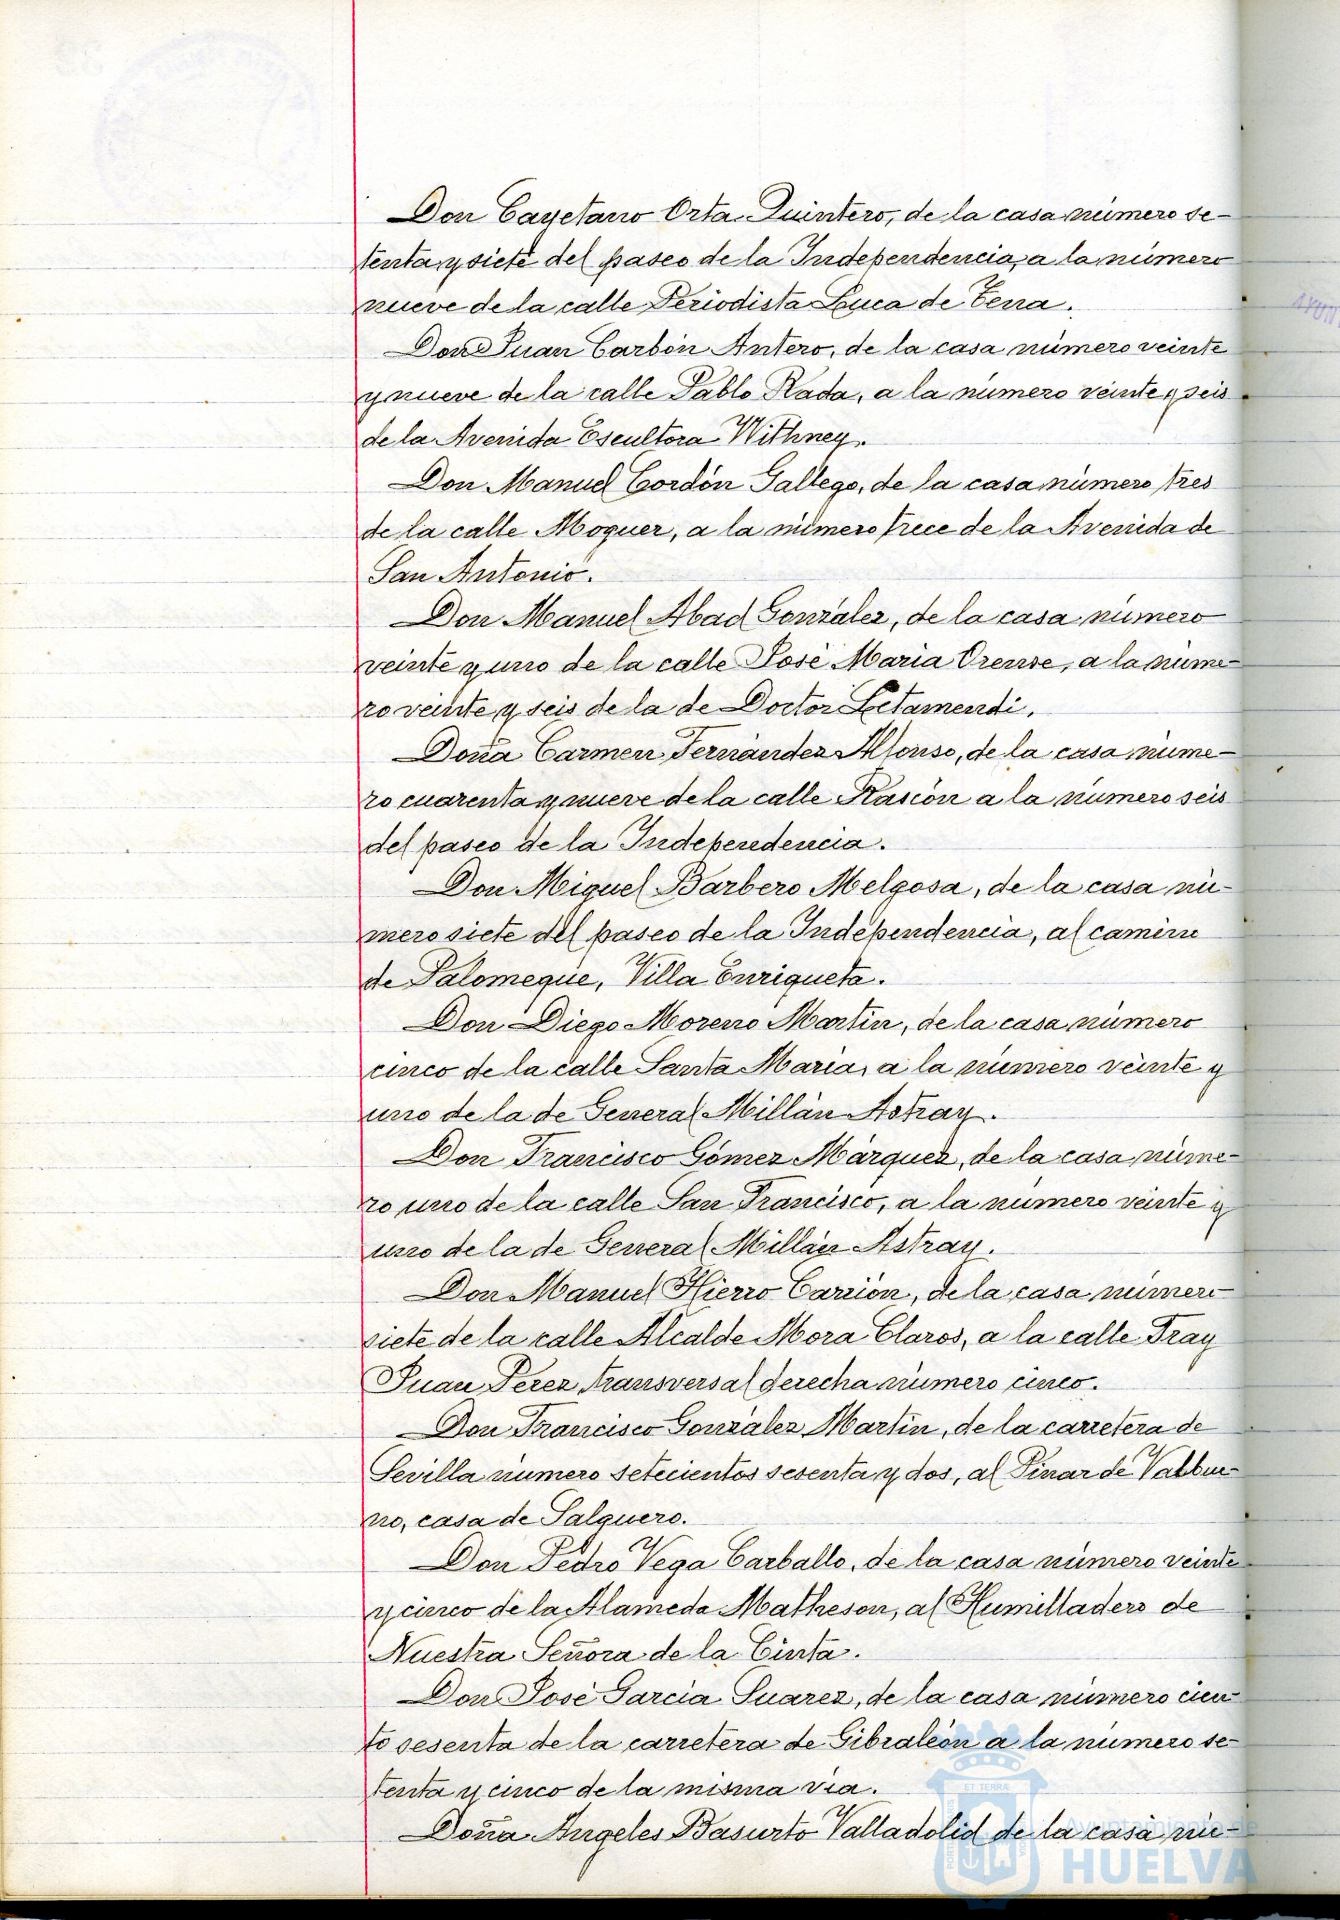 Don Cayetano Orta Quintero, de la casa número se-
tenta y siete del paseo de la Independencia, a la número
nueve de la calle Periodista Luca de Tena.
Don Juan Carbón Antero, de la casa número veinte
y nueve de la calle Pablo Rada, a la número veinte y seis
de la Avenida Escultora Withney.
Don Manuel Cordón Gallego, de la casa número tres
de la calle Moguer, a la número trece de la Avenida de
San Antonio.
Don Manuel Abad González, de la casa número
veinte y uno de la calle José Maria Orense, a la núme-
ro veinte y seis de la de Doctor Letamendi.
Doña Carmen Fernández Alfonso, de la casa núme-
ro cuarenta y nueve de la calle Rascón a la número seis
del paseo de la Independencia.
Don Miguel Barbero Melgosa, de la casa nú-
mero siete del paseo de la Independencia, al camino
de Palomeque, Villa Enriqueta.
Don Diego Moreno Martín, de la casa número
cinco de la calle Santa María, a la número veinte y
uno de la de General Millán Astray.
Don Francisco Gómez Márquez, de la casa núme-
ro uno de la calle San Francisco, a la número veinte y
uno de la de General Millán Astray.
Don Manuel Hierro Carrión, de la casa número
siete de la calle Alcalde Mora Claros, a la calle Fray
Juan Pérez transversal derecha número cinco.
Don Francisco González Martín, de la carretera de
Sevilla número setecientos sesenta y dos, al Pinar de Valbue-
no, casa de Salguero.
Don Pedro Vega Carballo, de la casa número veinte
y cinco de la Alameda Matheson, al Humilladero de
Nuestra Señora de la Cinta.
Don José García Suarez, de la casa número cien-
to sesenta de la carretera de Gibraleón a la número se-
tenta y cinco de la misma vía.
Doña Angeles Basurto Valladolid de la casa nú-
Ayuntamiento de
HUELVA